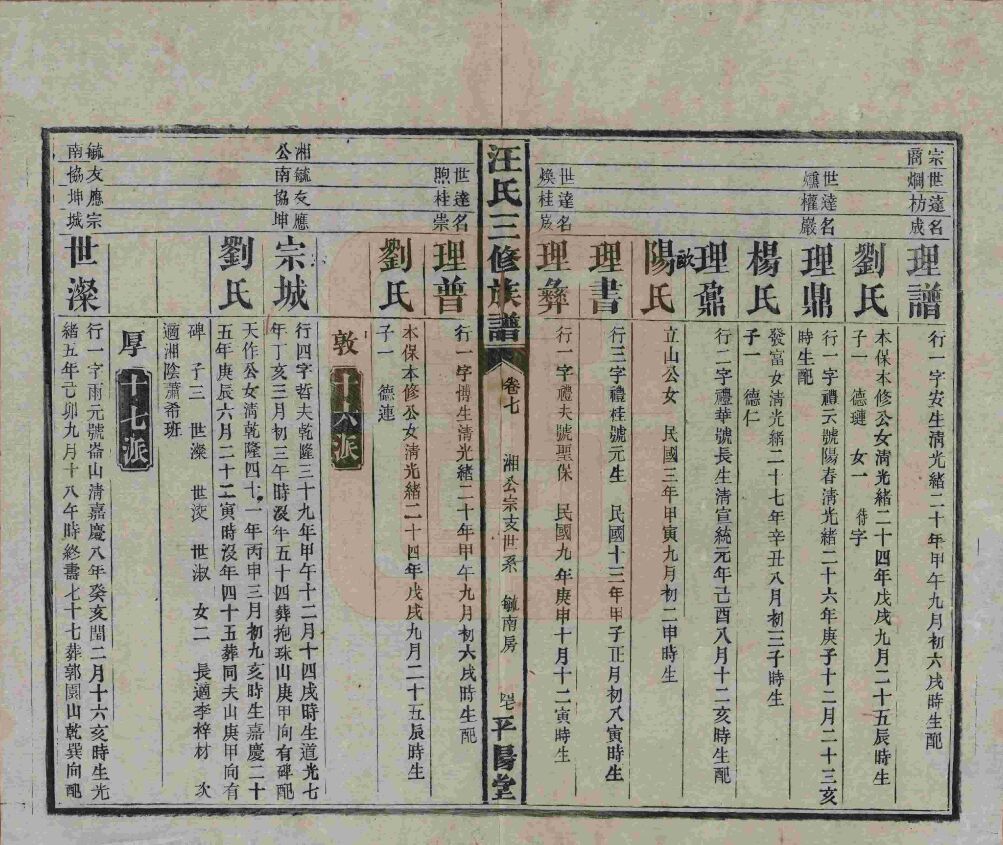 宗世達名
商燗枋成
理譜
行一字安生淸光緒二十年甲午九月初六戌時生配
劉氏
本保本修公女淸光緒二十四年戊戌九月二十五辰時生
子一 德璉 女一 待字
世達名
爋權巖
理鼎
行一字禮云號陽春淸光緒二十六年庚子十二月二十三亥
時生配
楊氏
發富女淸光緒二十七年辛丑八月初三子時生
子一 德仁
理鼐
行二字禮華號長生淸宣統元年己酉八月十二亥時生配
歐陽氏
立山公女 民國三年甲寅九月初二申時生
理書
行三字禮桂號元生 民國十三年甲子正月初八寅時生
世達名
煥桂嵗
理彝
行一字禮夫號聖保 民國九年庚申十月十二寅時生
汪氏三修族譜
卷七 湘公宗支世系 毓南房
平陽堂
世達名
煦桂崇
理普
行一字博生淸光緒二十年甲午九月初六戌時生配
劉氏
本保本修公女淸光緒二十四年戊戌九月二十五辰時生
子一 德連
敦 十六派
湘毓友應
公南協坤
宗城
行四字哲夫乾隆三十九年甲午十二月十四戌時生道光七
年丁亥三月初三午時沒年五十四葬抱珠山庚甲向有碑配
劉氏
天作公女淸乾隆四十一年丙申三月初九亥時生嘉慶二十
五年庚辰六月二十二寅時沒年四十五葬同夫山庚甲向有
碑 子三 世濼 世湥 世淑 女二 長適李梓材 次
適湘陰蕭希班
厚 十七派
毓友應宗
南協坤城
世濼
行一字雨元號崙山淸嘉慶八年癸亥閏二月十六亥時生光
緒五年己卯九月十八午時終壽七十七葬郭園山乾巽向配